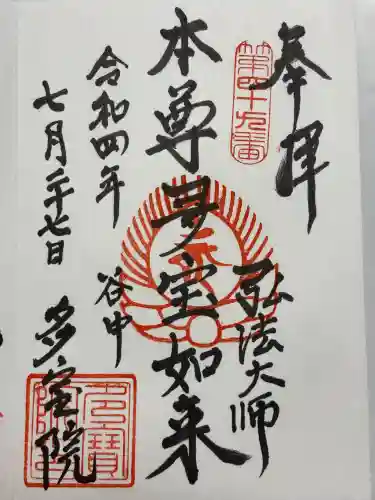 奉拝
第四十九番
弘法大師
本尊多宝如来
令和四年
七月二十七日
谷中
多宝院